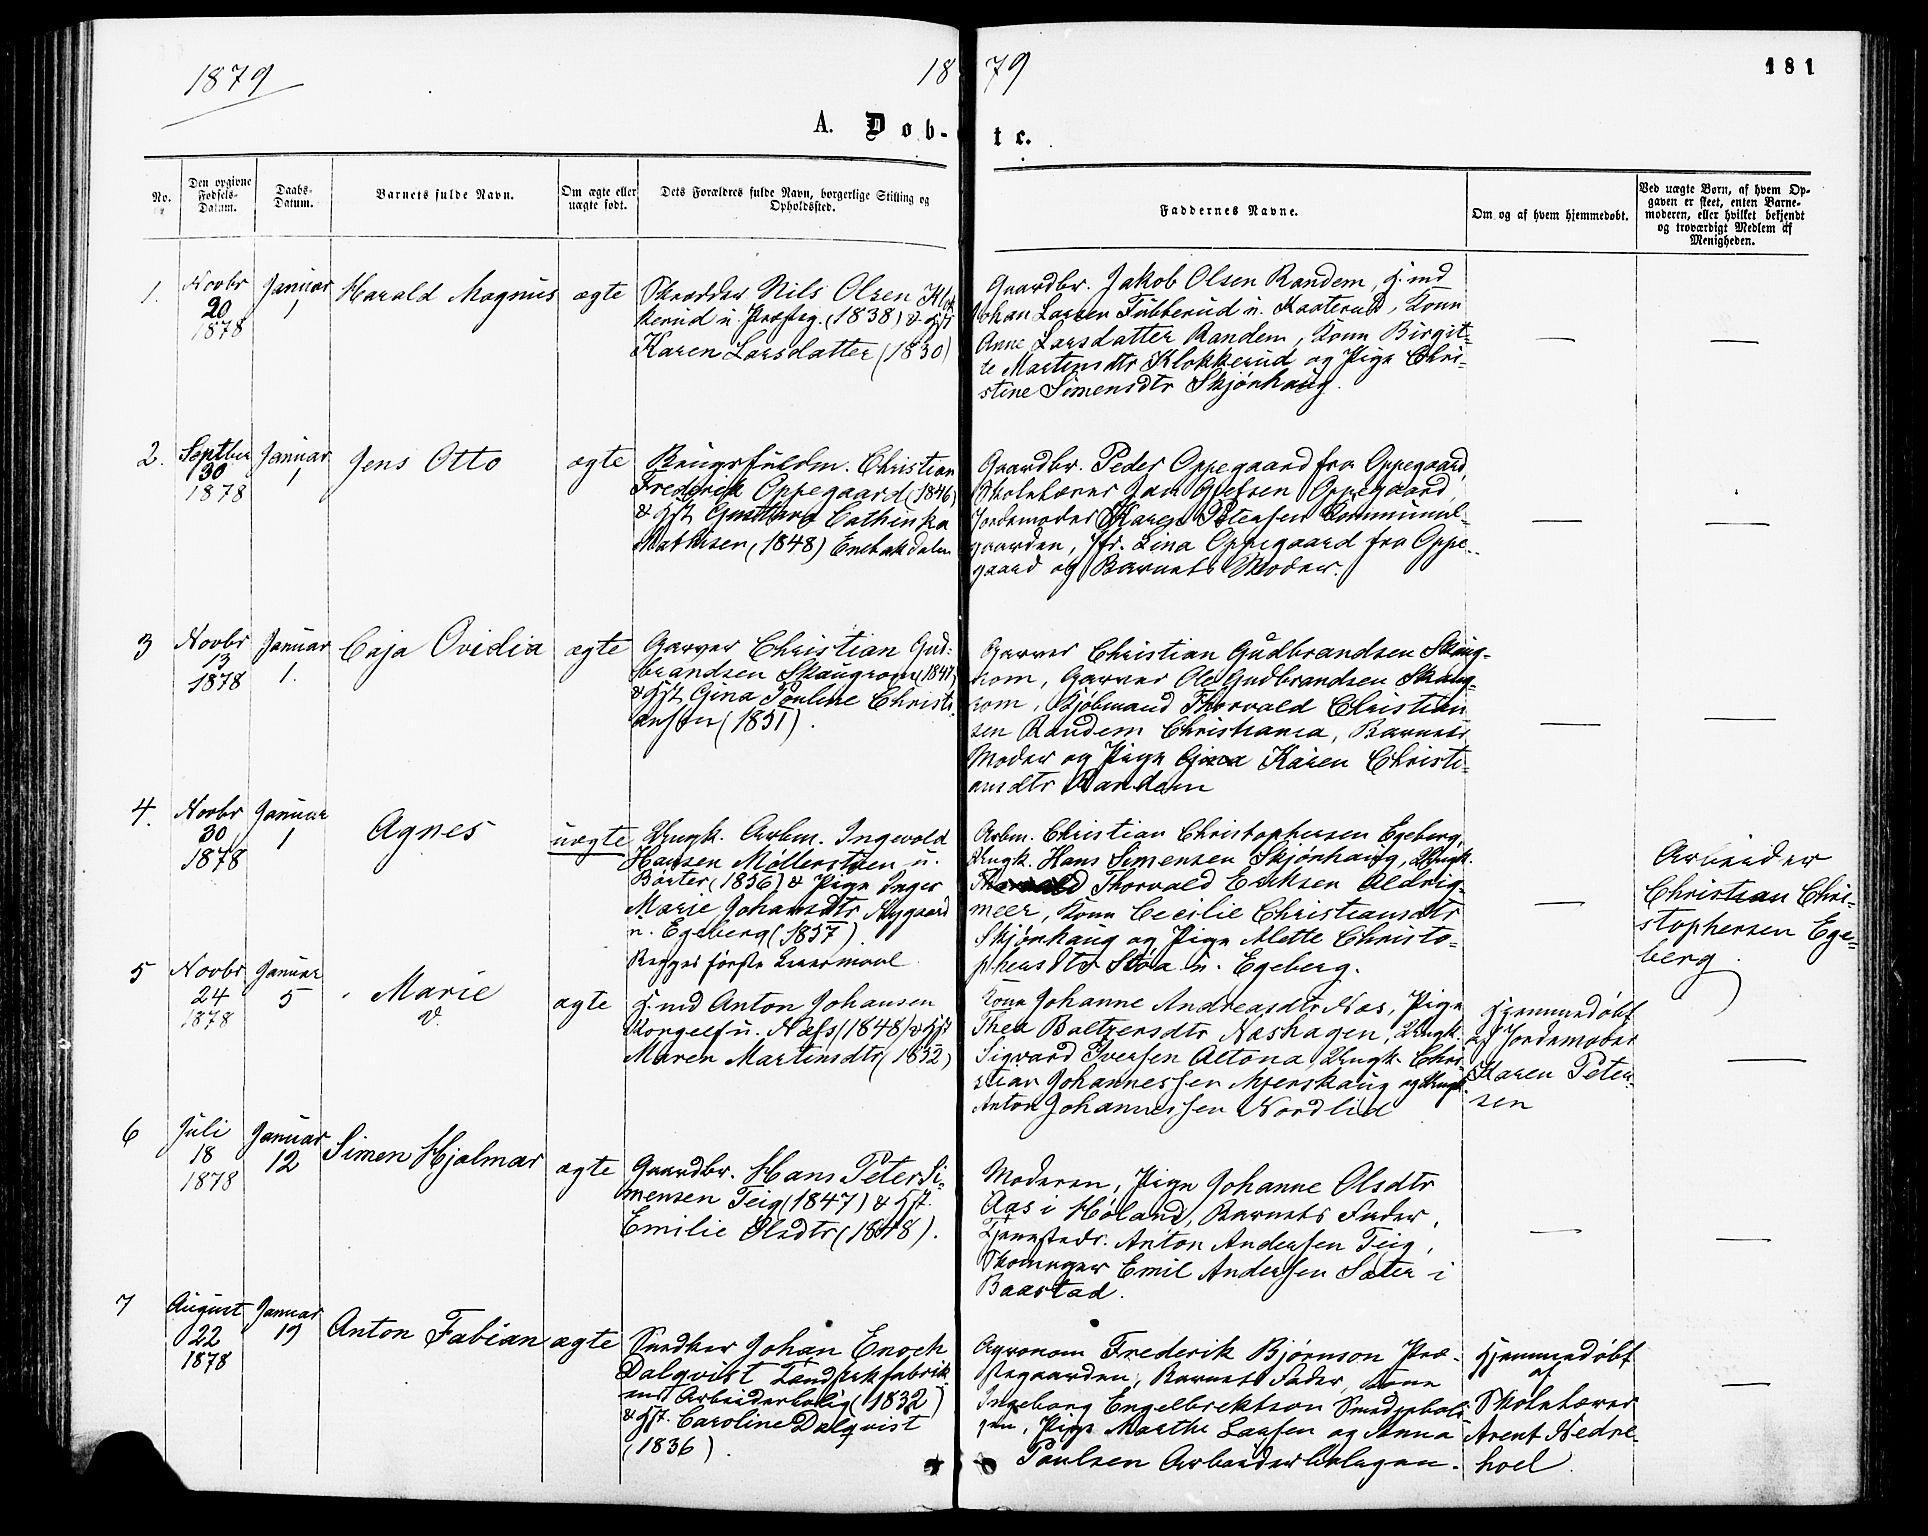 1879
1879
181
A. Døbte.
No.
Den opgivne Fødsels-Datum.
Daabs-Datum.
Barnets fulde Navn.
Om ægte eller uægte født.
Dets Forældres fulde Navn, borgerlige Stilling og Opholdssted.
Faddernes Navne.
Om og af hvem hjemmedøbt.
Ved uægte Børn, af hvem Opgaven er skeet, enten Barnemoderen, eller hvilket bekjendt og troværdigt Medlem af Menigheden.
1.
Novbr
20
1878
Januar
1
Harald Magnus
ægte
Skrædder Nils Olsen Klok-
kerud u. Præstg. (1838) & Hst
Karen Larsdatter (1830)
Gaardbr. Jakob Olsen Randem,
Johan Larsen Tubberud u. Kaaterud, Kone
Anne Larsdatter Randem, Kone Birgit-
te Martinsdtr Klokkerud og Pige Chri-
stine Simensdtr Skjønhaug.
—
—
2.
Septber
30
1878
Januar
1
Jens Otto
ægte
Brugsfuldm. Christian
Frederik Oppegaard (1846)
& Hst Cathinka
Mathisen (1848) Enebakdalen
Gaardbr. Peder Oppegaard fra Oppegaard,
Skolelærer Oppegaard,
Jordemoder Karen Petersen Kommunal-
gaarden, Jfr. Lina Oppegaard fra Oppe-
gaard og Barnets Moder.
—
—
3
Novbr
13
1878
Januar
1.
Caja Ovidia
ægte
Garver Christian Gud-
brandsen Skaugrom (1847)
& Hst Gina Pouline Christi-
ansen (1851).
Garver Christian Gudbrandsen Skaug-
rom, Garver Ole Gudbrandsen Skaug-
rom, Kjøbmand Thorvald Christian
sen Randem Christiania, Barnets
Moder og Pige Karen Christi-
ansdtr Randem
—
—
4.
Novbr
30
1878
Januar
1
Agnes
uægte
Ungk. Arbm. Ingevold
Hansen Møllerstuen u.
Børter (1856) & Pige Inger
Marie Johansdtr Nygaard
u. Egeberg (1857).
Begges første Leiermaal.
Arbm. Christian Christophersen Egeberg,
Ungk. Hans Simensen Skjønhaug, Ungk.
Thorvald Eriksen Aldrig-
meer, Kone Cecilie Christiansdtr
Skjønhaug og Pige Alette Christo-
phersdtr Støa u. Egeberg.
—
Arbeider
Christian Chri-
stophersen Ege-
berg.
5
Novbr
24
1878
Januar
5
Marie
v.
ægte
Hmd Anton Johansen
u. Næss (1848) & Hst
Maren Martinsdtr (1852)
Kone Johanne Andreasdtr Næs, Pige
Thea Baltzersdtr Næshagen, Ungk.
Sigvard Iversen Altona, Ungk. Chri-
stian Johannessen Mjerskaug og Ungk.
Anton Johannessen Nordlid
Hjemmedøbt
af Jordemoder
Karen Peter-
sen
—
6
Juli
18
1878
Januar
12
Simen Hjalmar
ægte
Gaardbr. Hans Peter Si-
mensen Teig (1847) & Hst.
Emilie Olsdtr (1848).
Moderen, Pige Johanne Olsdtr
Aas i Høland, Barnets Fader,
Anton Andersen Teig,
Skomager Emil Andersen Sæter i
Baastad.
—
—
7
August
22
1878
Januar
19
Anton Fabian
ægte
Snedker Johan Enoch
Dalqvist Tændstikfabrik-
kens Arbeiderbolig (1832)
& Hst. Caroline Dalqvist
(1836).
Agronom Frederik Bjørnson Præ-
stegaarden, Barnets Fader, Kone
Ingeborg Engelbrektson
Pige Marthe Larsen og Anna
Paulsen Arbeiderboligen.
Hjemmedøbt
af
Skolelærer
Arent Nedre-
hoel.
—